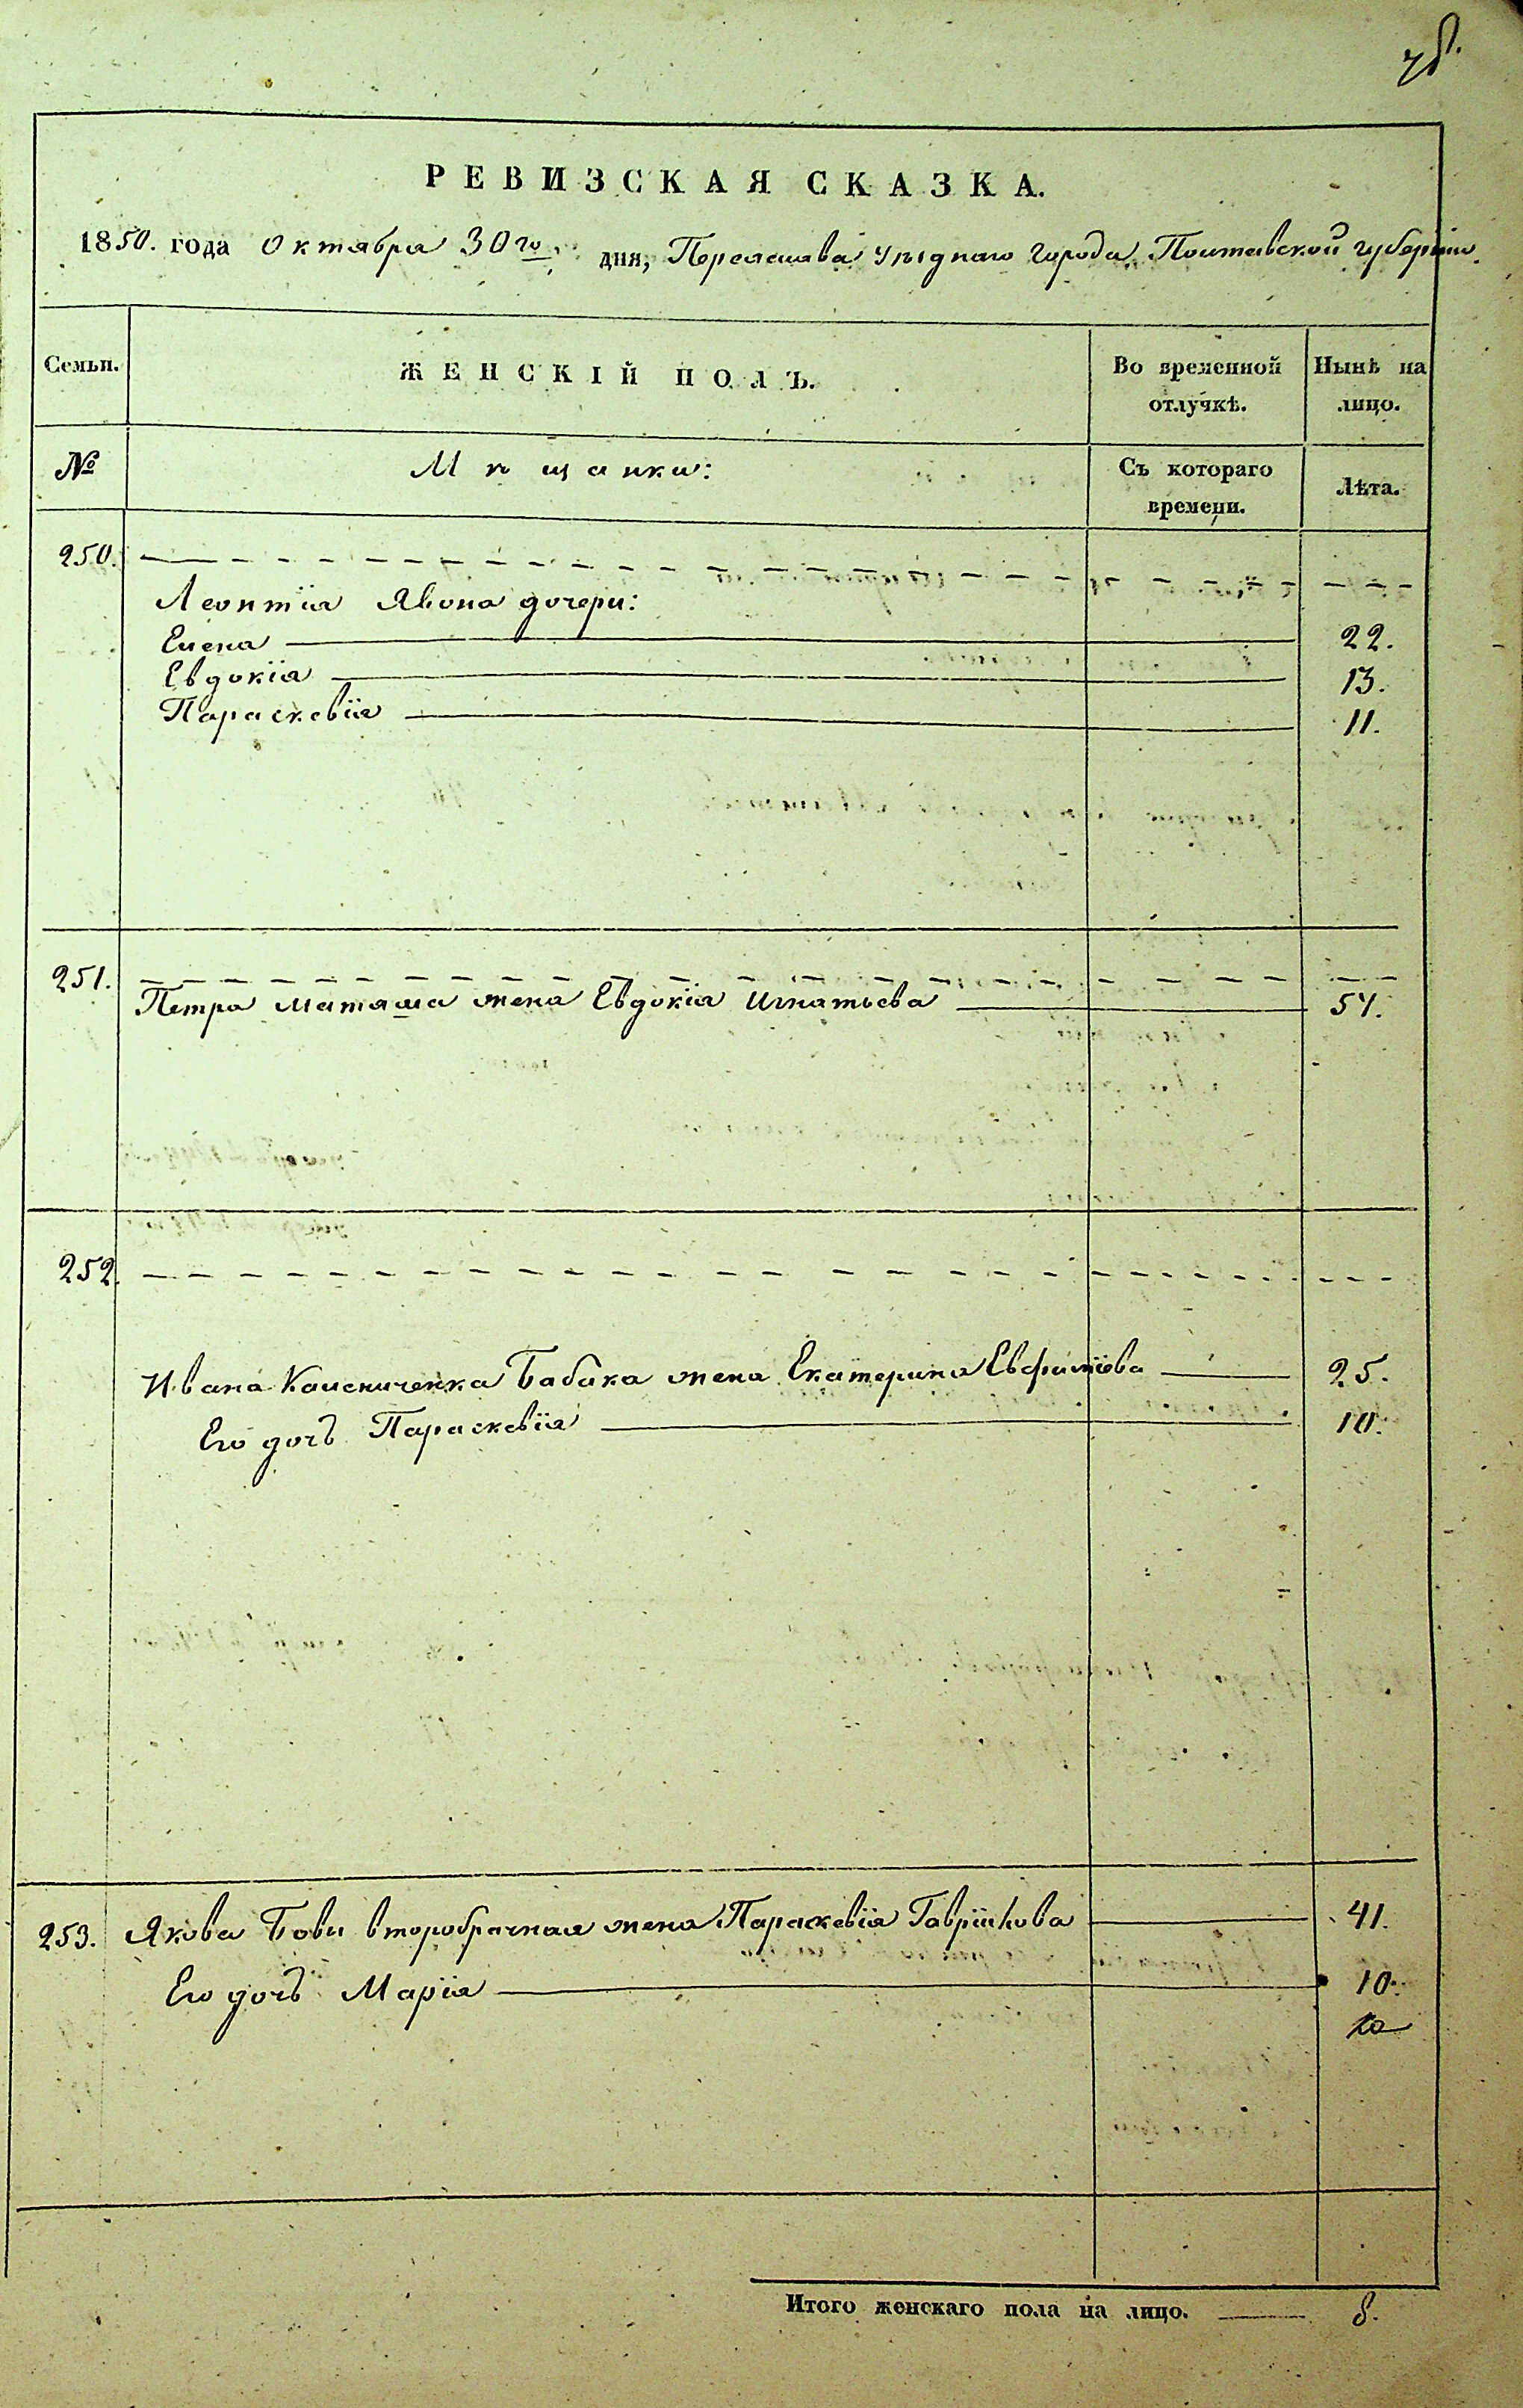 РЕВИЗСКАЯ СКАЗКА.
1850. года Октября 30го дня, Переяслава уѣзднаго города Полтавской губерніи.
Семьи. ЖЕНСКІЙ ПОЛЪ. Во временной отлучкѣ. Нынѣ на лицо.
№ Мѣщанки: Съ котораго времени. Лѣта.
250.
Леонтія Явона дочери:
Елена 22.
Евдокія 13.
Параскевія 11.
251.
Петра Матяша жена Евдокія Игнатьева 57.
252.
Ивана Колениченка Бабака жена Екатерина Евфиміова 25.
Его дочь Параскевія 10.
253. Якова Бови второбрачная жена Параскевія Гавріилова 41.
Его дочь Марія 10.
Итого женскаго пола на лицо. 8.